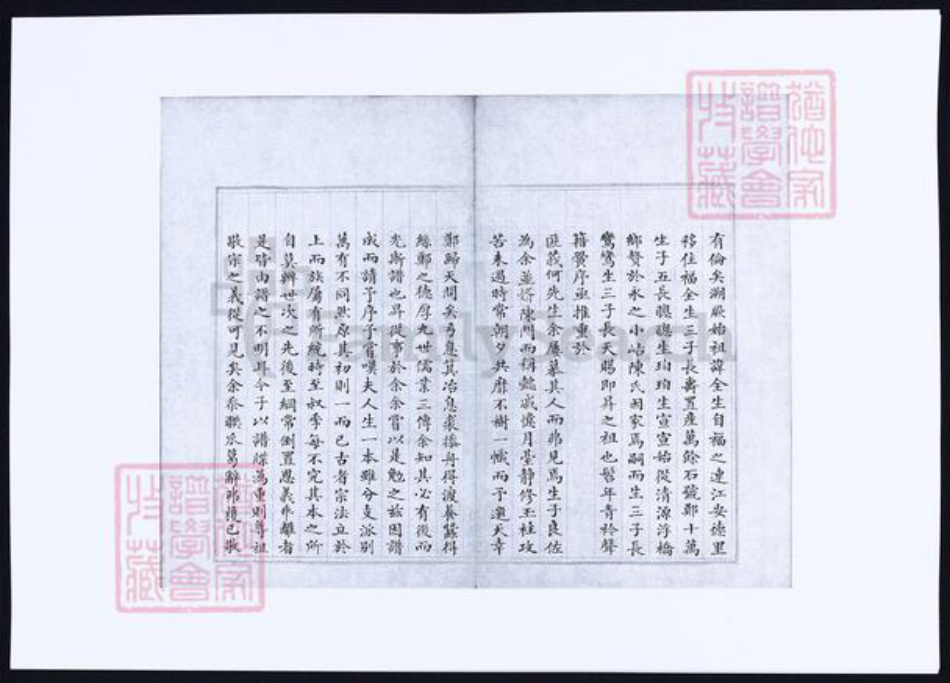 有倫矣溯厥始祖諱全生自福之連江安德里
移住福全生三子長壽置產萬餘石號鄭十萬
生子五長驄驄生珀珀生宣宣始從清源浮橋
鄉贅於永之小岵陳氏因家焉嗣而生三子長
鸞鸞生三子長天賜即昇之祖也髫年青衿聲
籍黌序亟推重於
匡莪何先生余屢慕其人而弗見焉生子良佐
為余並婿陳門而稱懿戚憶月臺靜修玉柱攻
苦未過時常朝夕共磨不樹一幟而予還天幸
鄭歸天問矣弓息箕冶息裘接舟得渡養蠶得
絲鄭之德厚九世儒業三傳余知其必有後而
光斯譜也昇從事於余余嘗以是勉之茲因譜
成而請予序予嘗嘆夫人生一本雖分支派別
萬有不同然原其初則一而已古者宗法立於
上而族屬有所統時至叔季每不究其本之所
自莫辨世次之先後至綱常倒置恩義乖離者
是皆由譜之不明耳今子以譜牒為重則尊祖
敬宗之義從可見矣余忝聯瓜葛辭弗獲已敬
FamilySearch
譜學會
收藏
譜學會
收藏